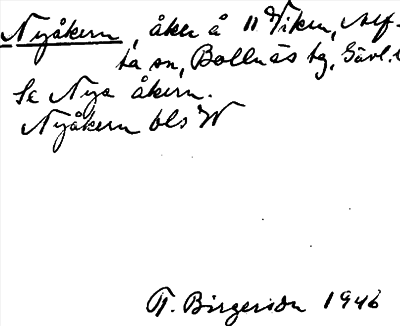 Nyåkern, åker å 11 Viken, Alf-
ta sn, Bollnäs tg, Gävl. l
Se Nya åkern.
Nyåkern bls W
T. Birgerson 1946